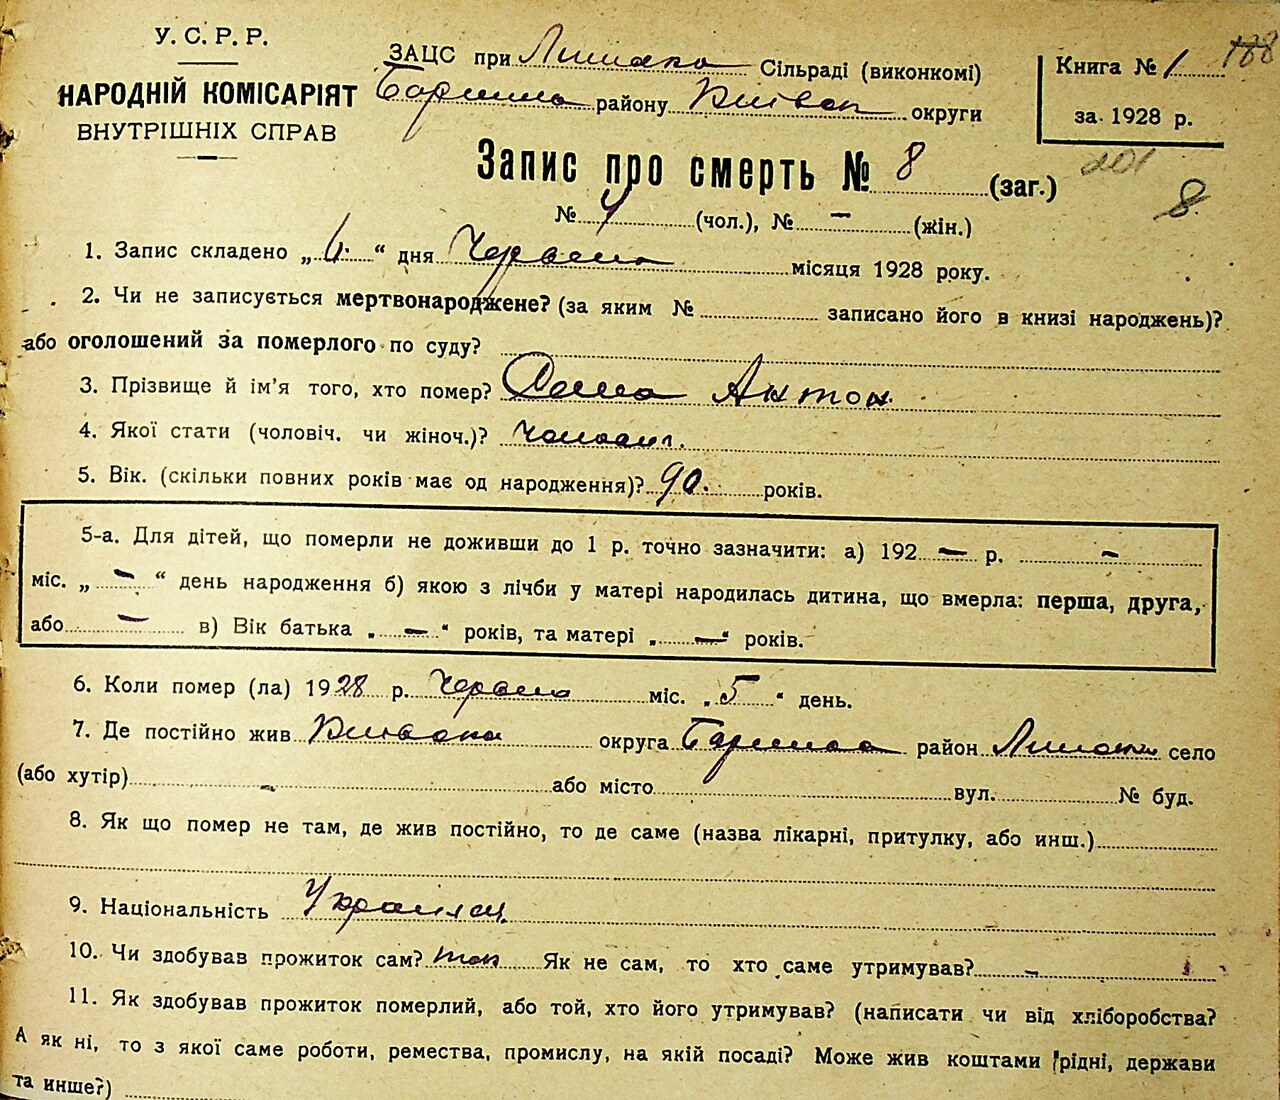 У. С. Р. Р.
НАРОДНІЙ КОМІСАРІЯТ
ВНУТРІШНІХ СПРАВ
ЗАЦС при Сільраді (виконкомі)
району округи
Книга № 1 168
за 1928 р.
Запис про смерть № 8 (заг.) 201
№ 4 (чол.), № – (жін.) 8.
1. Запис складено „6“ дня Червень місяця 1928 року.
2. Чи не записується мертвонароджене? (за яким № записано його в книзі народжень)?
або оголошений за померлого по суду?
3. Прізвище й ім'я того, хто помер? Антон
4. Якої стати (чоловіч. чи жіноч.)?
5. Вік. (скільки повних років має од народження)? 90. років.
5-а. Для дітей, що померли не доживши до 1 р. точно зазначити: а) 192 – р. –
міс. „ – “ день народження б) якою з лічби у матері народилась дитина, що вмерла: перша, друга,
або – в) Вік батька „ – “ років, та матері „ – “ років.
6. Коли помер (ла) 1928 р. Червень міс. „5“ день.
7. Де постійно жив округа район село
(або хутір) – або місто вул. № буд.
8. Як що помер не там, де жив постійно, то де саме (назва лікарні, притулку, або инш.)
9. Національність Україн
10. Чи здобував прожиток сам? так Як не сам, то хто саме утримував? –
11. Як здобував прожиток померлий, або той, хто його утримував? (написати чи від хліборобства?
А як ні, то з якої саме роботи, ремества, промислу, на якій посаді? Може жив коштами рідні, держави
та инше?)